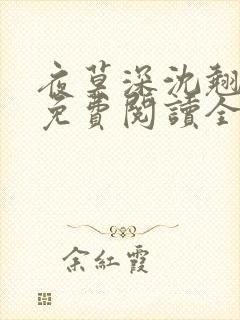 夜草深沈翘
免費閱讀全
余紅霞